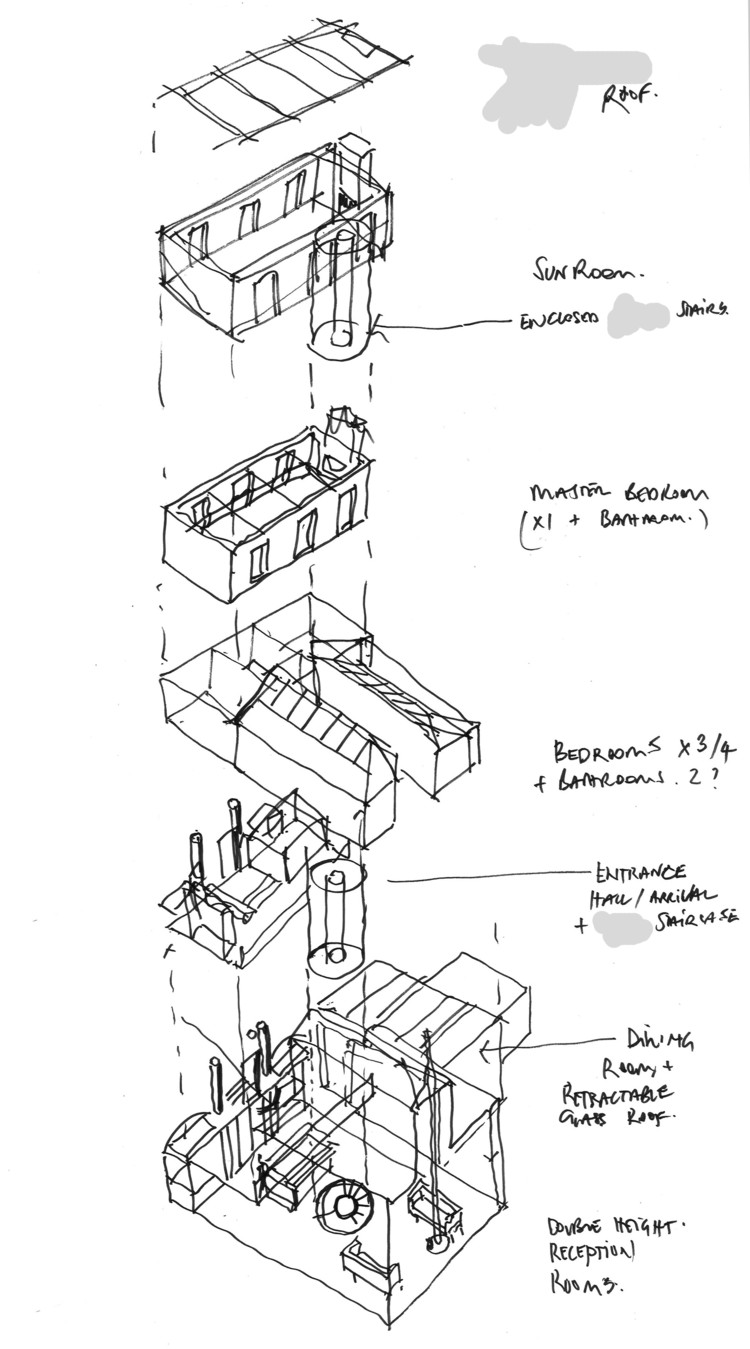 ROOF.
SUNROOM.
ENCLOSED STAIRS.
MASTER BEDROOM
(X1 + BATHROOM.)
BEDROOMS X 3/4
+ BATHROOMS. 2?
ENTRANCE
HALL/ARRIVAL
+ STAIRCASE
DINING
ROOM +
RETRACTABLE
GLASS ROOF.
DOUBLE HEIGHT.
RECEPTION
ROOMS.